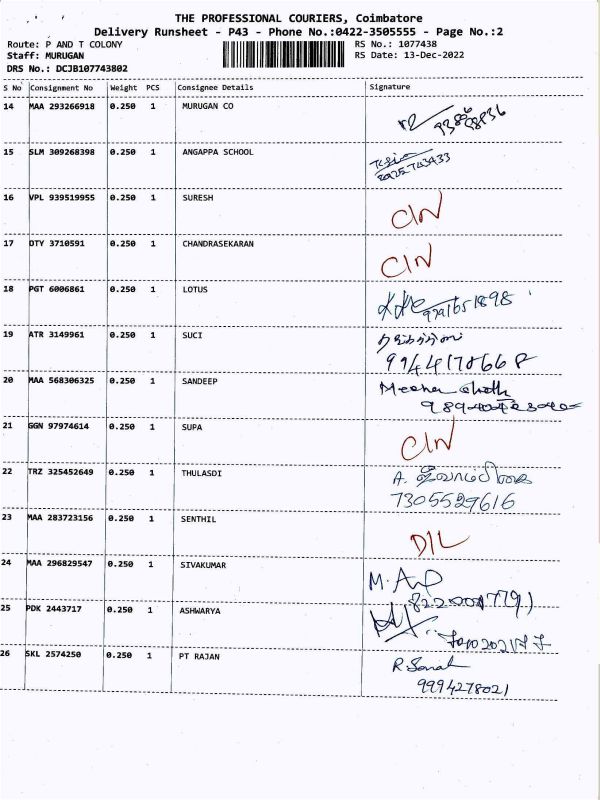 THE PROFESSIONAL COURIERS, Coimbatore
Delivery Runsheet - P43 - Phone No.:0422-3505555 - Page No.:2
Route: P AND T COLONY RS No.: 1077438
Staff: MURUGAN RS Date: 13-Dec-2022
DRS No.: DCJB107743802
S No Consignment No Weight PCS Consignee Details Signature
14 MAA 293266918 0.250 1 MURUGAN CO
15 SLM 309268398 0.250 1 ANGAPPA SCHOOL
16 VPL 939519955 0.250 1 SURESH CIN
17 OTY 3710591 0.250 1 CHANDRASEKARAN CIN
18 PGT 6006861 0.250 1 LOTUS
19 ATR 3149961 0.250 1 SUCI
20 MAA 568306325 0.250 1 SANDEEP
21 GGN 97974614 0.250 1 SUPA CIN
22 TRZ 325452649 0.250 1 THULASDI A.
7305529616
23 MAA 283723156 0.250 1 SENTHIL D/L
24 MAA 296829547 0.250 1 SIVAKUMAR
25 PDK 2443717 0.250 1 ASHWARYA
26 SKL 2574250 0.250 1 PT RAJAN
9994278021